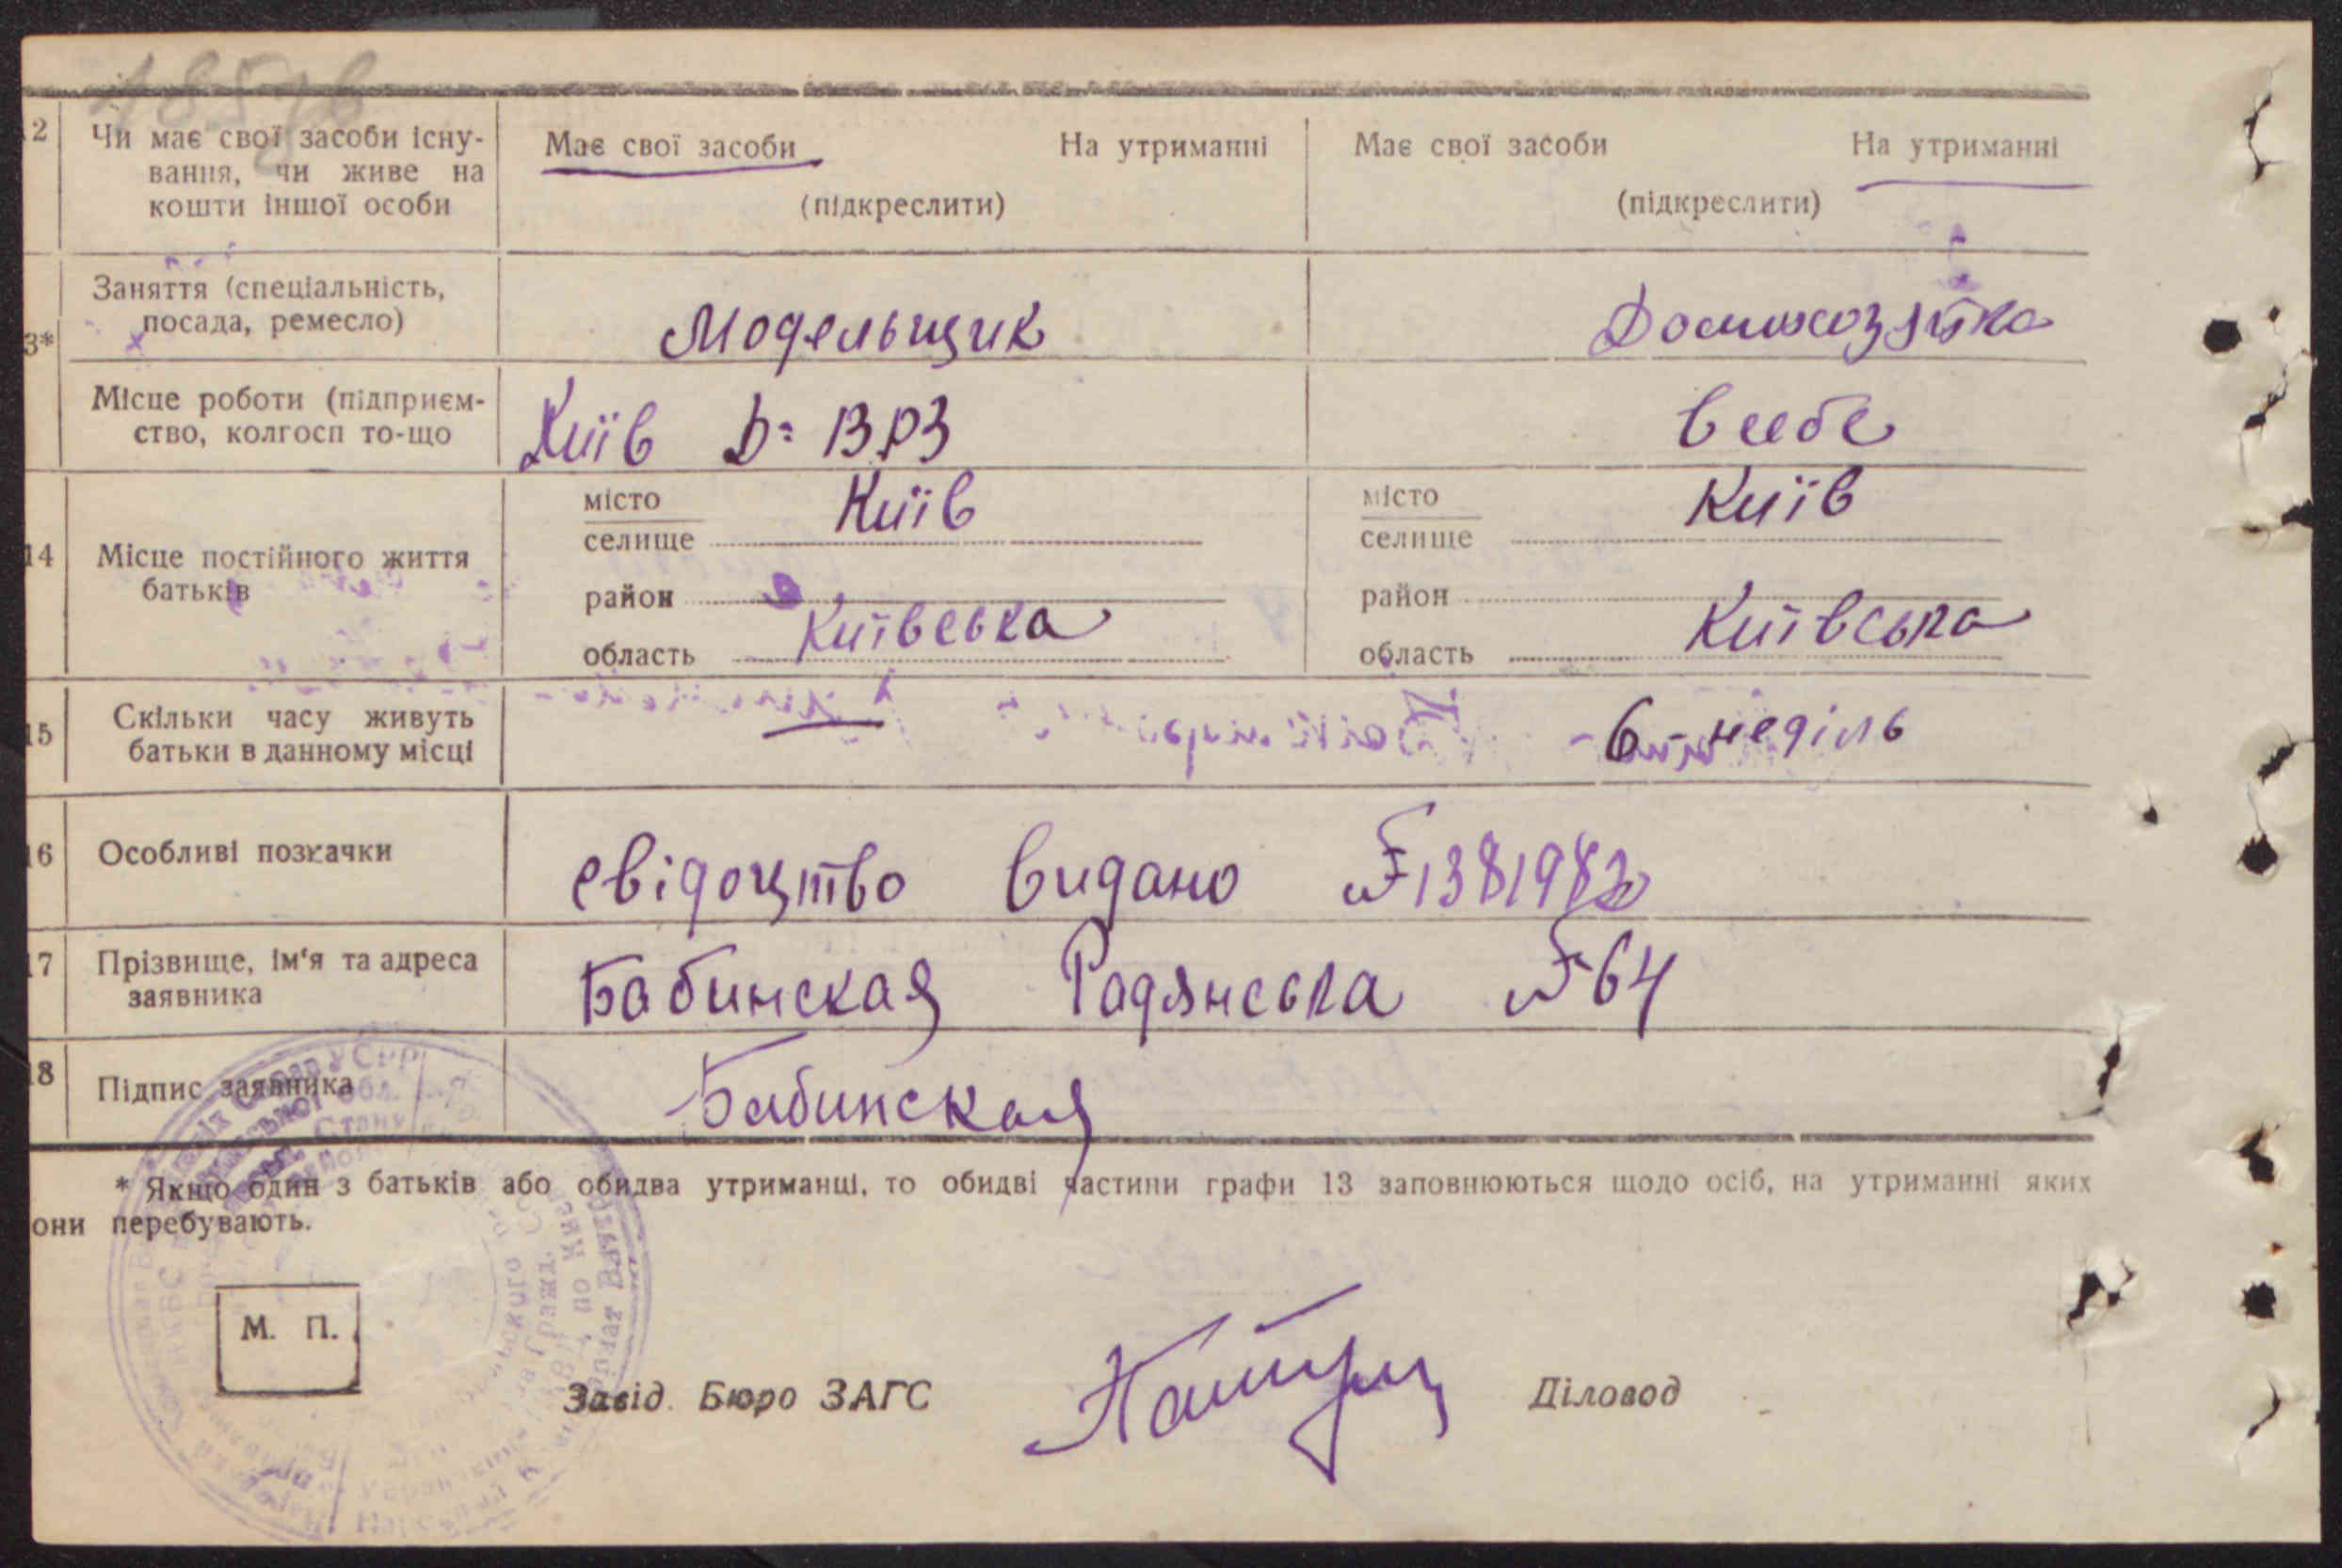 2 Чи має свої засоби існу- Має свої засоби На утриманні Має свої засоби На утриманні
вання, чи живе на
кошти іншої особи (підкреслити) (підкреслити)
Заняття (спеціальність,
посада, ремесло) Модельщик Домохозяйка
3*
Місце роботи (підприєм-
ство, колгосп то-що Київ ВРЗ
14 Місце постійного життя
батьків
місто Київ місто Київ
селище селище
район район
область Київська область Київська
15 Скільки часу живуть
батьки в данному місці — 6 неділь
16 Особливі позначки свідоцтво видано №
17 Прізвище, ім'я та адреса
заявника Бабинская Радянська № 64
18 Підпис заявника Бабинская
* Якщо один з батьків або обидва утриманці, то обидві частини графи 13 заповнюються щодо осіб, на утриманні яких
они перебувають.
М. П.
Завід. Бюро ЗАГС Діловод